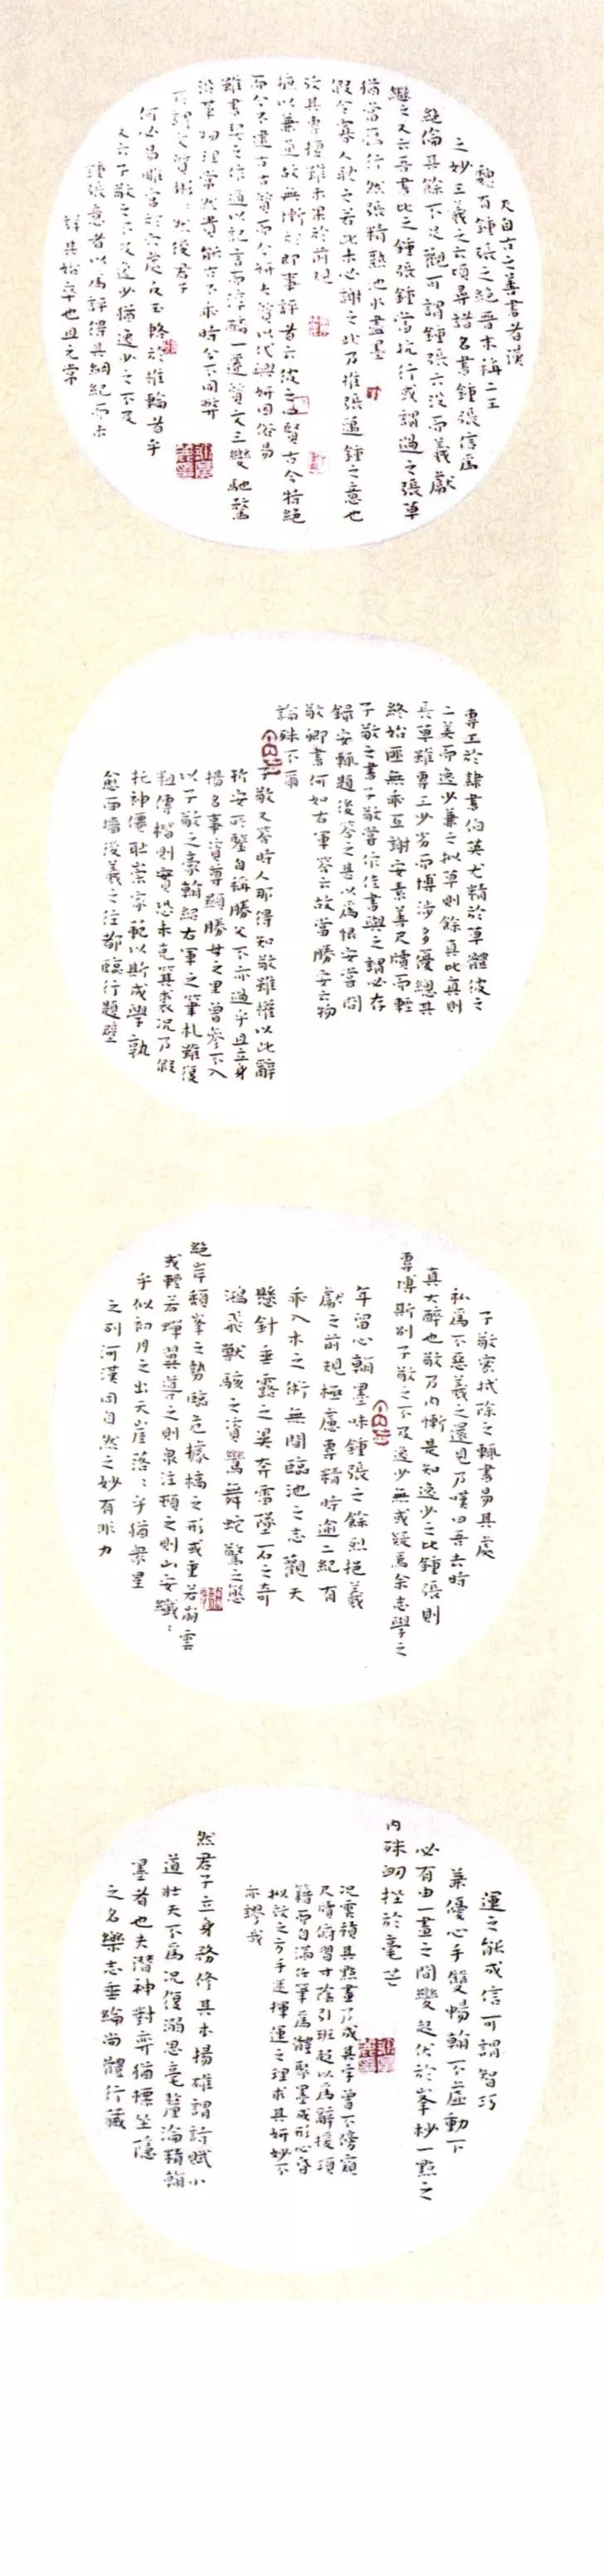 夫自古之善書者漢
魏有鍾張之絕晉末稱二王
之妙王羲之云頃尋諸名書鍾張信為
絕倫其餘不足觀可謂鍾張云沒而羲獻
繼之又云吾書比之鍾張鍾當抗行或謂過之張草
猶當鴈行然張精熟池水盡墨
假令寡人耽之若此未必謝之此乃推張邁鍾之意也
考其專擅雖未果於前規
摭以兼通故無慚於即事評者云彼之四賢古今特絕
而今不逮古古質而今妍夫質以代興妍因俗易
雖書契之作適以記言而淳醨一遷質文三變馳騖
沿革物理常然貴能古不乖時今不同弊
所謂文質彬彬然後君子
何必易雕宮於穴處反玉輅於椎輪者乎
又云子敬之不及逸少猶逸少之不及
鍾張意者以為評得其綱紀而未
詳其始卒也且元常
專工於隸書伯英尤精於草體彼之
二美而逸少兼之擬草則餘真比真則
長草雖專工少劣而博涉多優總其
終始匪無乖互謝安素善尺牘而輕
子敬之書子敬嘗作佳書與之謂必存
錄安輒題後答之甚以為恨安嘗問
敬卿書何如右軍答云故當勝安云物
論殊不爾
子敬又答時人那得知敬雖權以此辭
折安所鑒自稱勝父不亦過乎且立身
揚名事資尊顯勝母之里曾參不入
以子敬之豪翰紹右軍之筆札雖復
粗傳楷則實恐未克箕裘況乃假
托神僊恥崇家範以斯成學孰
愈面墻後羲之往都臨行題壁
子敬密拭除之輒書易其處
私為不惡羲之還見乃嘆曰吾去時
真大醉也敬乃內慚是知逸少之比鍾張則
專博斯別子敬之不及逸少無或疑焉余志學之
年留心翰墨味鍾張之餘烈挹羲
獻之前規極慮專精時逾二紀有
乖入木之術無間臨池之志觀夫
懸針垂露之異奔雷墜石之奇
鴻飛獸駭之資鸞舞蛇驚之態
絕岸頹峯之勢臨危據槁之形或重若崩雲
或輕若蟬翼導之則泉注頓之則山安纖纖
乎似初月之出天崖落落乎猶眾星
之列河漢同自然之妙有非力
運之能成信可謂智巧
兼優心手雙暢翰不虛動下
必有由一畫之間變起伏於峯杪一點之
內殊衂挫於毫芒
況雲積其點畫乃成其字曾不傍窺
尺牘俯習寸陰引班超以為辭援項
籍而自滿任筆為體聚墨成形心昏
擬效之方手迷揮運之理求其妍妙不
亦謬哉
然君子立身務修其本揚雄謂詩賦小
道壯夫不為況復溺思毫釐淪精翰
墨者也夫潛神對弈猶標坐隱
之名樂志垂綸尚體行藏